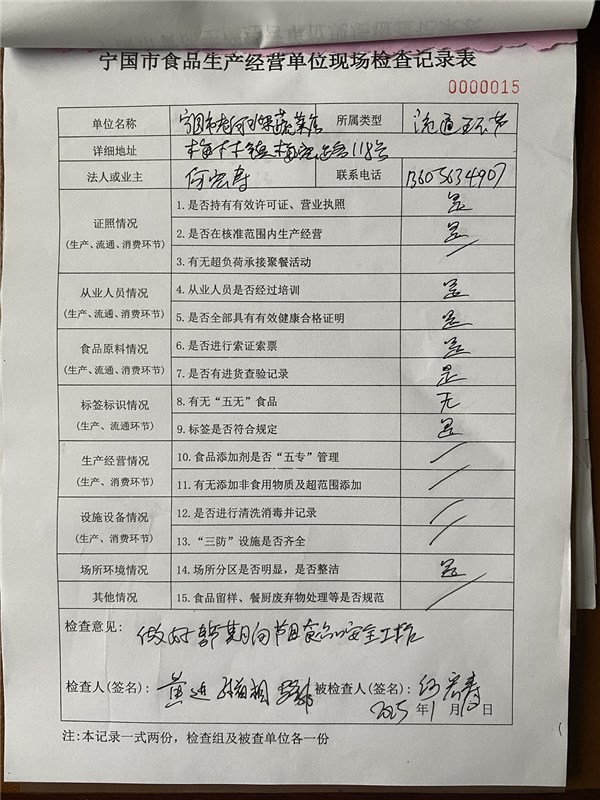 宁国市食品生产经营单位现场检查记录表
0000015
单位名称 宁国市 蔬菜店 所属类型 流通环节
详细地址 梅林镇梅 路118号
法人或业主 何宏寿 联系电话 13605634907
证照情况 (生产、流通、消费环节)
1.是否持有有效许可证、营业执照 是
2.是否在核准范围内生产经营 是
3.有无超负荷承接聚餐活动 /
从业人员情况 (生产、流通、消费环节)
4.从业人员是否经过培训 是
5.是否全部具有有效健康合格证明 是
食品原料情况 (生产、流通、消费环节)
6.是否进行索证索票 是
7.是否有进货查验记录 是
标签标识情况 (生产、流通环节)
8.有无“五无”食品 无
9.标签是否符合规定 是
生产经营情况 (生产、消费环节)
10.食品添加剂是否“五专”管理 /
11.有无添加非食用物质及超范围添加 /
设施设备情况 (生产、消费环节)
12.是否进行清洗消毒并记录 /
13.“三防”设施是否齐全 /
场所环境情况 14.场所分区是否明显，是否整洁 是
其他情况 15.食品留样、餐厨废弃物处理等是否规范 /
检查意见: 做好 期间节日食品安全工作
检查人(签名): 黄 被检查人(签名): 何宏寿
2025年1月 日
注:本记录一式两份，检查组及被查单位各一份